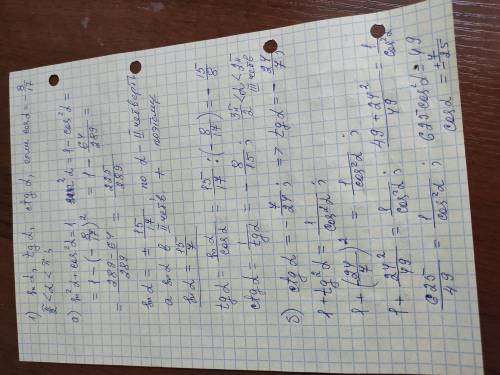 1) sin α, tg α, ctg α, если cos α = -8/17
π/2 < α < π;
а) sin²α + cos²α = 1; sin²α = 1 - cos²α =
= 1 - (-8/17)² = 1 - 64/289 =
= 289-64/289 = 225/289
sin α = ± 15/17 но α - II четверть
а sin α в II четв + поэтому
sin α = 15/7
tg α = sin α/cos α = 15/17 : (-8/17) = -15/8
ctg α = 1/tg α = -8/15;
б) ctg α = -7/24; => tg α = -24/7;
3π/2 < α < 2π
III четв
1 + tg²α = 1/cos²α;
1 + (24/7)² = 1/cos²α;
1 + 24²/49 = 1/cos²α; 49 + 24²/49 = 1/cos²α
625/49 = 1/cos²α; 625cos²α = 49
cos α = ± 7/25